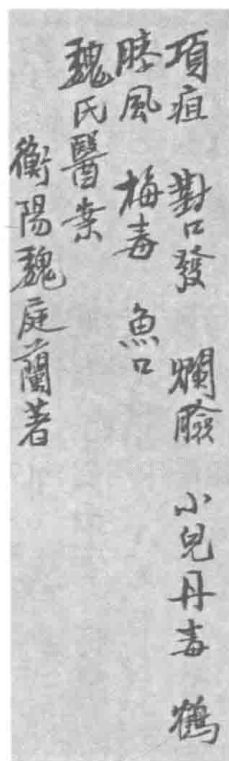 項疽 對口發 爛臉 小兒丹毒 鶴
膝風 梅毒 魚口
魏氏醫案
衡陽魏庭蘭著